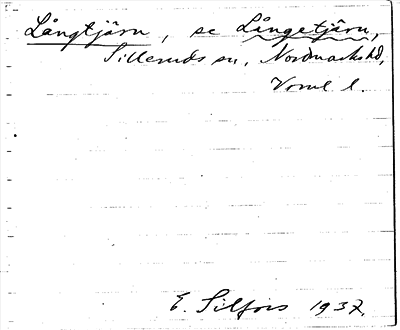 Långtjärn, se Långetjärn,
Silleruds sn, Nordmarks hd,
Vrml l.
E. Silfors 1937.